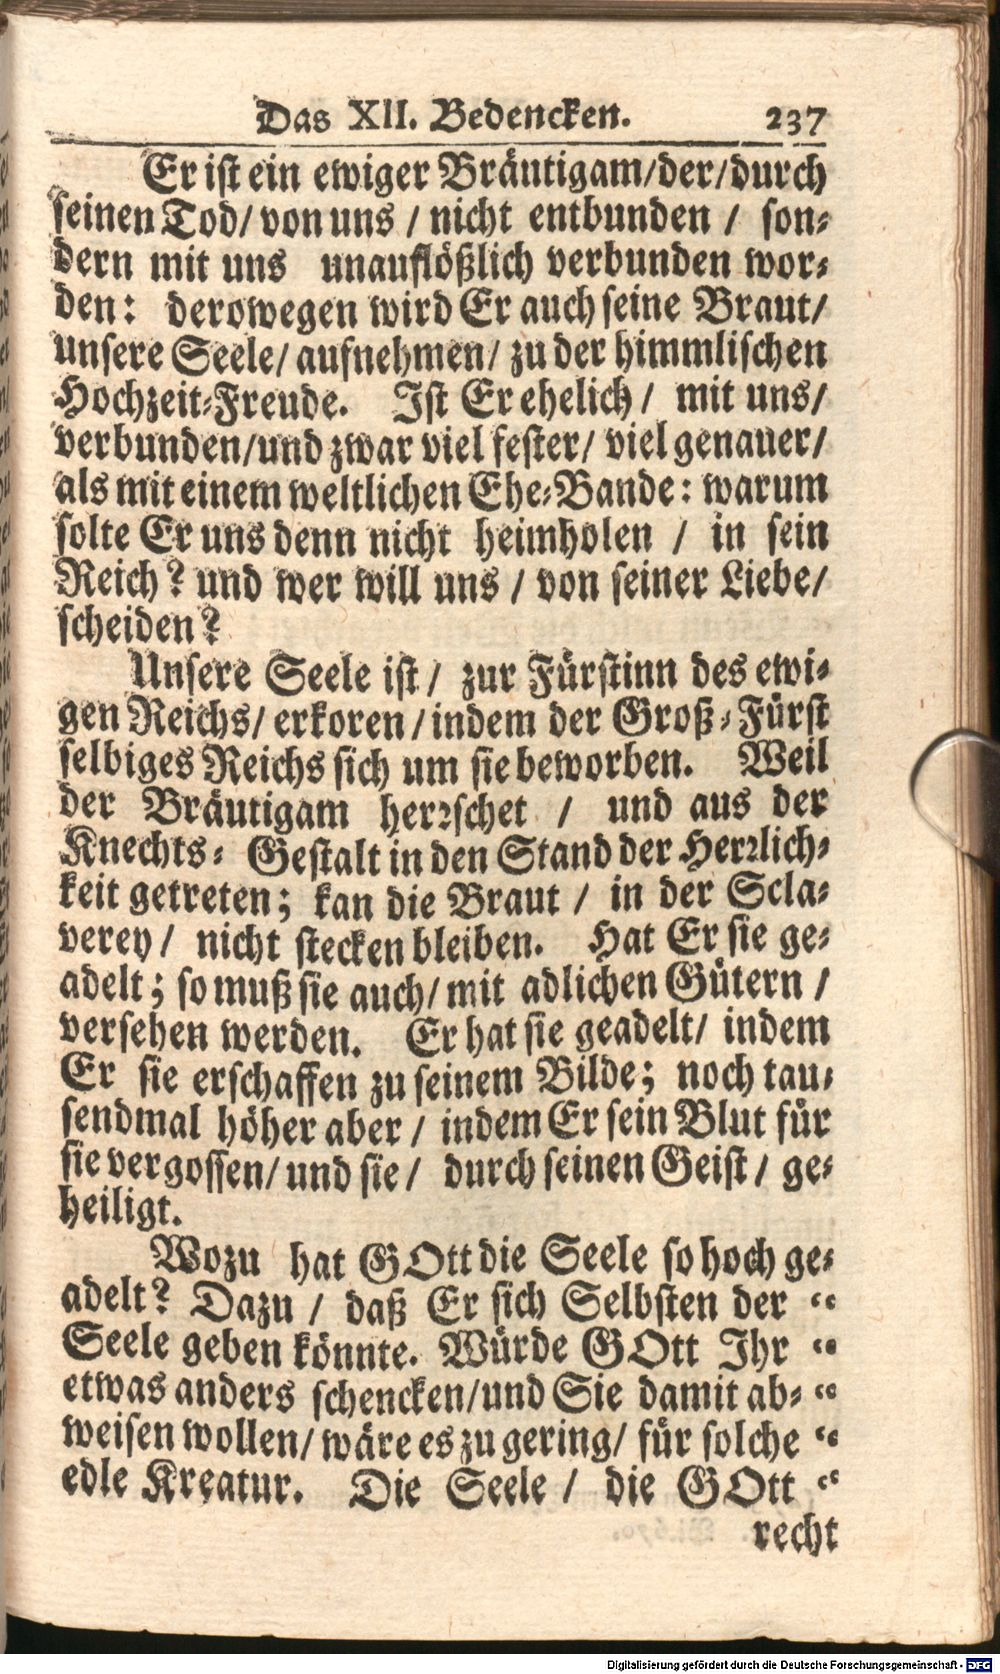 Das XII. Bedencken. 237
Er ist ein ewiger Bräutigam/der/durch
seinen Tod/ von uns / nicht entbunden / son-
dern mit uns unauflößlich verbunden wor-
den: derowegen wird Er auch seine Braut/
unsere Seele/ aufnehmen/ zu der himmlischen
Hochzeit-Freude. Ist Er ehelich / mit uns/
verbunden/und zwar viel fester/ viel genauer/
als mit einem weltlichen Ehe-Bande: warum
solte Er uns denn nicht heimholen / in sein
Reich? und wer will uns / von seiner Liebe/
scheiden?
Unsere Seele ist / zur Fürstinn des ewi-
gen Reichs/ erkoren / indem der Groß-Fürst
selbiges Reichs sich um sie beworben. Weil
der Bräutigam herrschet / und aus der
Knechts- Gestalt in den Stand der Herrlich-
keit getreten; kan die Braut / in der Scla-
verey / nicht stecken bleiben. Hat Er sie ge-
adelt; so muß sie auch/ mit adlichen Gütern /
versehen werden. Er hat sie geadelt/ indem
Er sie erschaffen zu seinem Bilde; noch tau-
sendmal höher aber / indem Er sein Blut für
sie vergossen/ und sie / durch seinen Geist / ge-
heiligt.
Wozu hat GOtt die Seele so hoch ge-
adelt? Dazu / daß Er sich Selbsten der “
Seele geben könnte. Würde GOtt Ihr “
etwas anders schencken/und Sie damit ab- “
weisen wollen/ wäre es zu gering/ für solche “
edle Kreatur. Die Seele / die GOtt “
recht
Digitalisierung gefördert durch die Deutsche Forschungsgemeinschaft - DFG